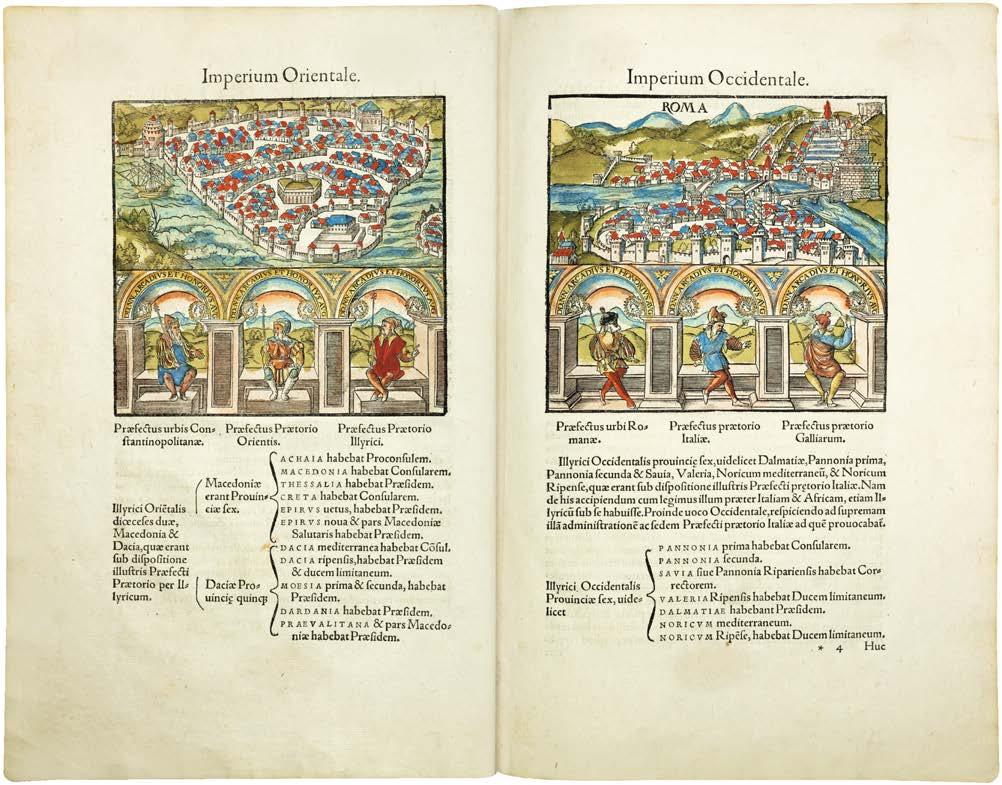 Imperium Orientale.
DD. NN. ARCADIVS ET HONORIVS AVG
ARCADIVS ET HONORIVS AVG
ARCADIVS ET HONORIVS AVG
Præfectus urbis Con-
stantinopolitanæ.
Præfectus Prætorio
Orientis.
Præfectus Prætorio
Illyrici.
Illyrici Oriẽtalis
diœceses duæ,
Macedonia &
Dacia, quæ erant
sub dispositione
illustris Præfecti
Prætorio per Il-
lyricum.
Macedoniæ
erant Provin-
ciæ sex.
ACHAIA habebat Proconsulem.
MACEDONIA habebat Consularem.
THESSALIA habebat Præsidem.
CRETA habebat Consularem.
EPIRVS uetus, habebat Præsidem.
EPIRVS noua & pars Macedoniæ
Salutaris habebat Præsidem.
Daciæ Pro-
uincię quinqꝫ
DACIA mediterranea habebat Cõsul.
DACIA ripensis, habebat Præsidem
& ducem limitaneum.
MOESIA prima & secunda, habebat
Præsidem.
DARDANIA habebat Præsidem.
PRAEVALITANA & pars Macedo-
niæ habebat Præsidem.
Imperium Occidentale.
ROMA
ARCADIVS ET HONORIVS
ARCADIVS ET HONORIVS
ARCADIVS ET HONORIVS
Præfectus urbi Ro-
manæ.
Præfectus prætorio
Italiæ.
Præfectus prætorio
Galliarum.
Illyrici Occidentalis prouincię sex, uidelicet Dalmatiæ, Pannonia prima,
Pannonia secunda & Sauia, Valeria, Noricum mediterraneũ, & Noricum
Ripense, quæ erant sub dispositione illustris Præfecti pretorio Italiæ. Nam
de his accipiendum cum legimus illum præter Italiam & Africam, etiam Il-
lyricũ sub se habuisse. Proinde uoco Occidentale, respiciendo ad supremam
illã administrationẽ ac sedem Præfecti prætorio Italiæ ad quẽ prouocabãt.
Illyrici Occidentalis
Prouinciæ sex, uide-
licet
PANNONIA prima habebat Consularem.
PANNONIA secunda.
SAVIA siue Pannonia Ripariensis habebat Cor-
rectorem.
VALERIA Ripensis habebat Ducem limitaneum.
DALMATIAE habebant Præsidem.
NORICVM mediterraneum.
NORICVM Ripẽse, habebat Ducem limitaneum.
* 4 Huc